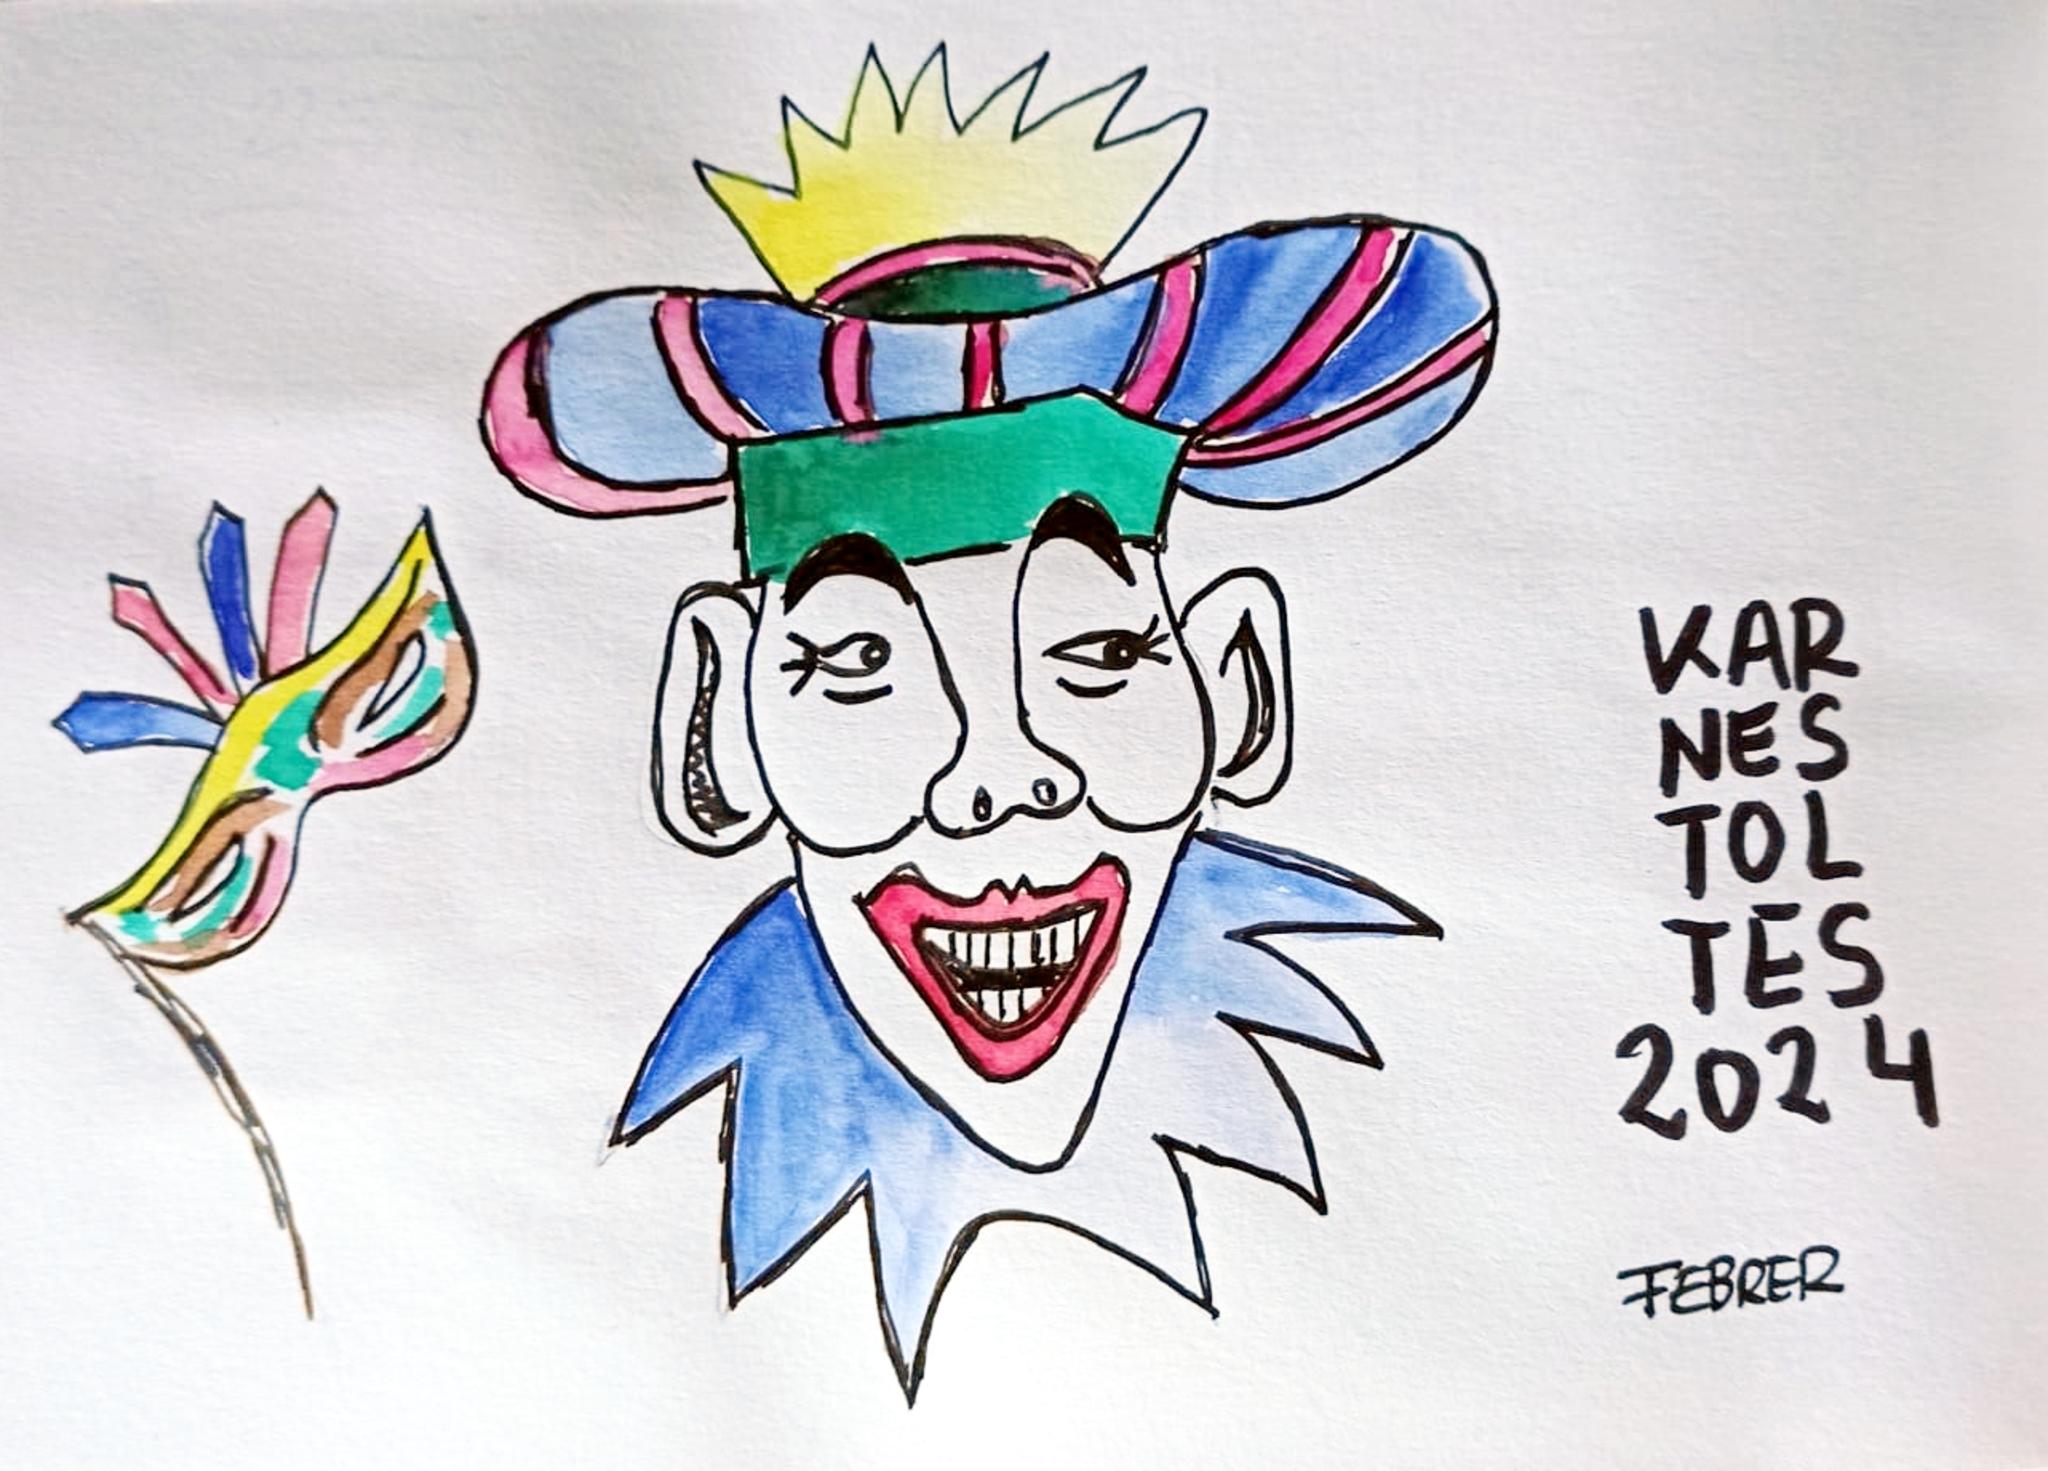 KAR
NES
TOL
TES
2024
FEBRER